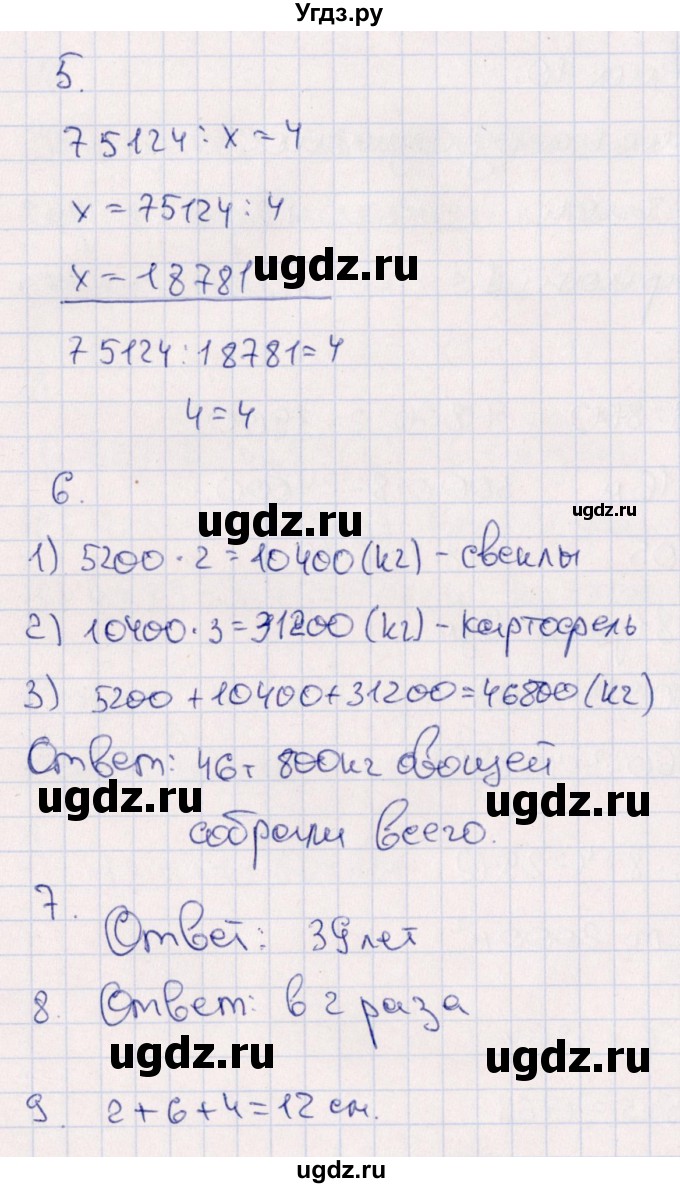 Угдз.ру
5.
75124 : x = 4
x = 75124 : 4
x = 18781
ugdz.ru
75124 : 18781 = 4
4 = 4
6.
ugdz.ru
ugdz.ru
1) 5200 · 2 = 10400 (кг) - свеклы
2) 10400 · 3 = 31200 (кг) - картофель
3) 5200 + 10400 + 31200 = 46800 (кг)
Ответ: 46т 800кг овощей
ugdz.ru
ugdz.ru
собрали всего.
7.
Ответ: 39 лет
8. Ответ: в 2 раза
ugdz.ru
ugdz.ru
9. 2 + 6 + 4 = 12 см.
ugdz.ru